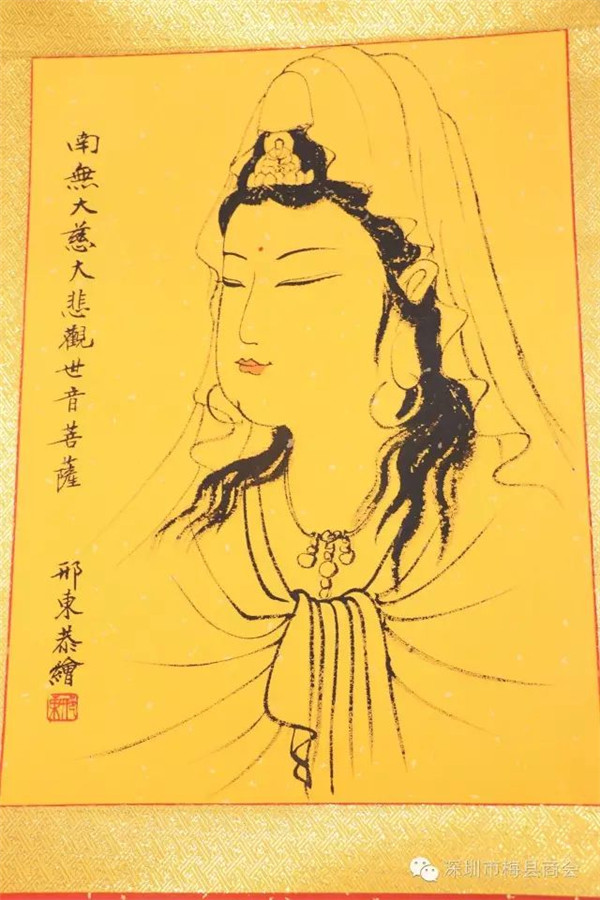 南無大慈大悲觀世音菩薩
邢東恭繪
深圳市梅县商会